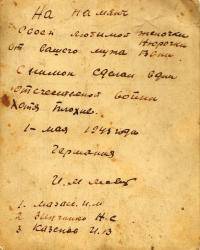 На память
Своей любимой женочки Нюрочки
от вашего мужа Вани
Снимок сделан в дни
отечественой войны
Хотя плохие.
1- мая 1945 года
Германия
1. И.М
2. Зинченко Н.С
3. И.В